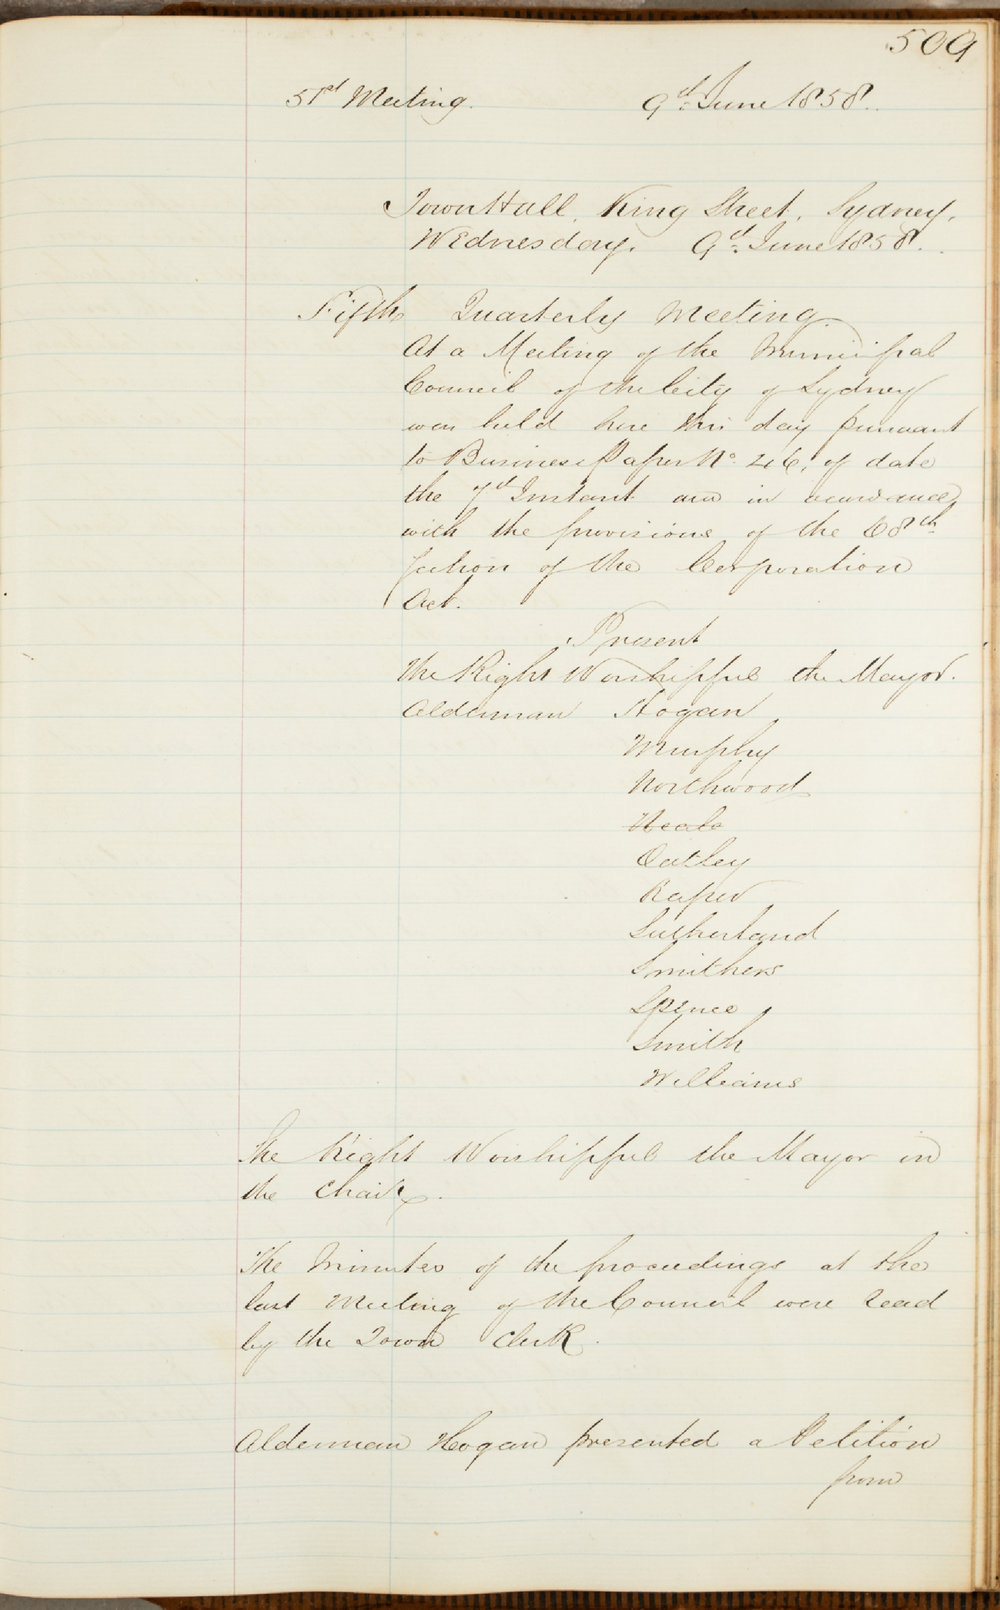 509
51st Meeting. 9th June 1858.
Town Hall. King Street, Sydney,
Wednesday. 9th June 1858.
Fifth Quarterly Meeting.
At a Meeting of the Municipal
Council of the City of Sydney
was held here this day pursuant
to Business Paper No. 46, of date
the 7th Instant and in accordance
with the provisions of the 68th
Section of the Corporation
Act.
Present
The Right Worshipful the Mayor.
Alderman Hogan
Murphy
Northwood
Neale
Oatley
Raper
Sutherland
Smithers
Spence
Smith
Williams
The Right Worshipful the Mayor in
the Chair.
The Minutes of the proceedings at the
last Meeting of the Council were read
by the Town Clerk.
Alderman Hogan presented a Petition
from